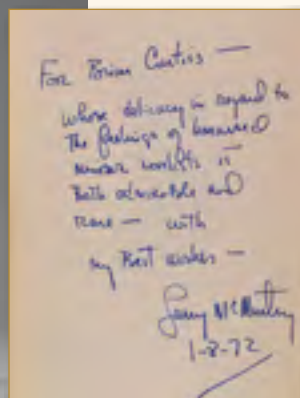 For Brian Curtiss —
whose delicacy in regard to
the feelings of
minor novelists is
both admirable and
rare — with
my Best wishes —
Larry McMurtry
1-8-72